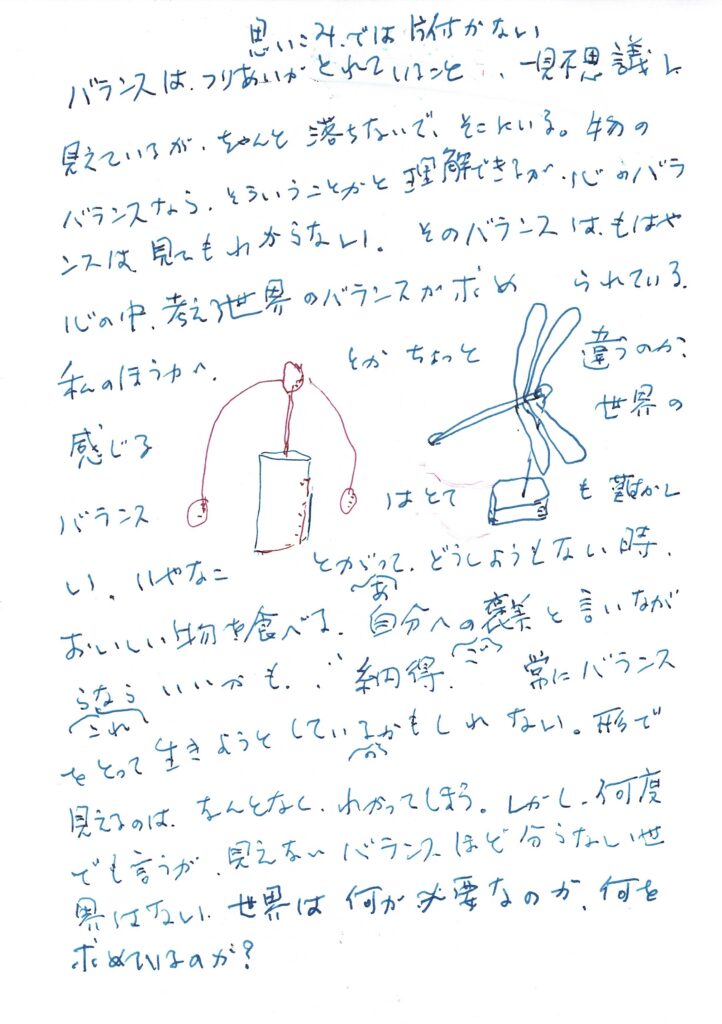 思いこみでは片付かない
バランスは、つりあいがとれていること、一見不思議に
見えているが、ちゃんと落ちないで、そこにいる。物の
バランスなら、そういうことかと理解できるが、心のバラ
ンスは、見てもわからない。そのバランスは、もはや
心の中、考える世界のバランスが求められている。
私のほうが、とかちょっと違うのか?
感じる世界の
バランスはとても難かし
い、いやなことがあって、どうしようもない時、
おいしい物を食べる、自分への褒美と言いなが
らなら、いいかも、、納得、常にバランス
ごう
これ
をとって生きようとしているかもしれない。形で
の
見えるのは、なんとなく、わかってしまう。しかし、何度
でも言うが、見えないバランスほど分らない世
界はない、世界は何が必要なのか、何を
求めているのか?